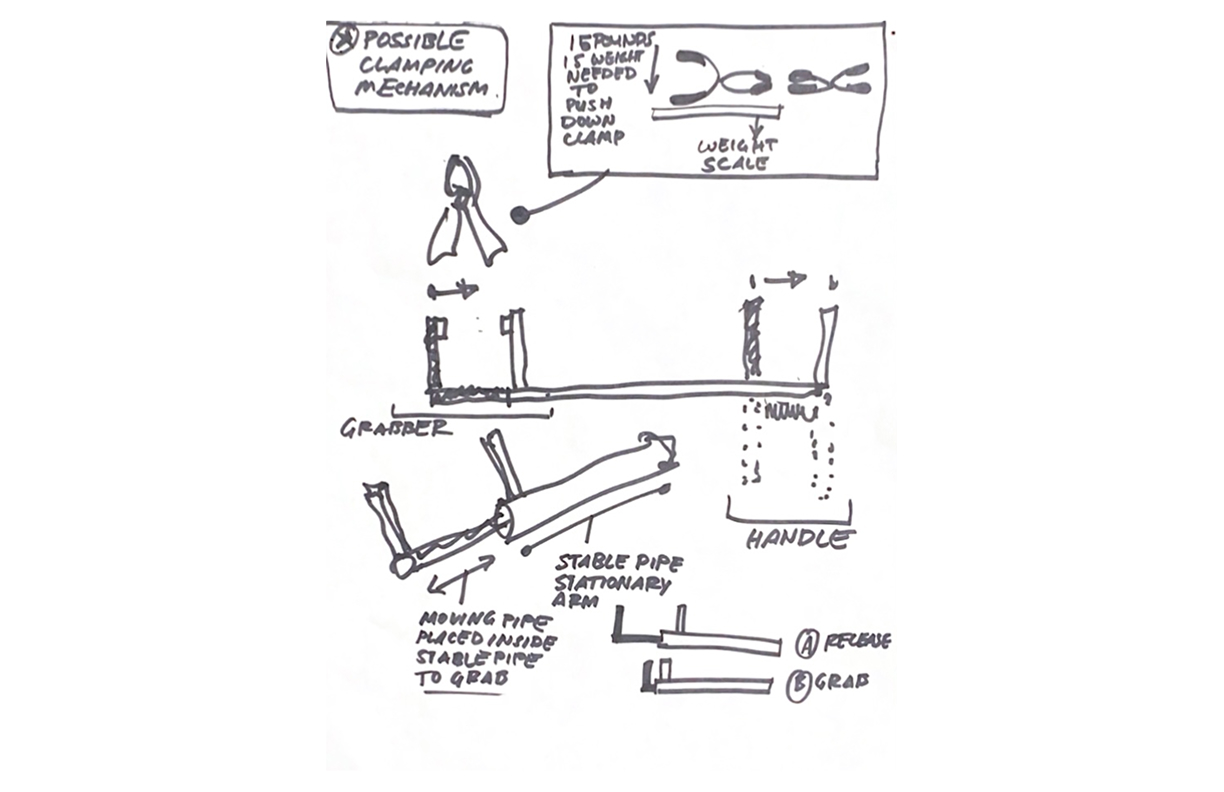 A POSSIBLE
CLAMPING
MECHANISM
15 POUNDS
IS WEIGHT
NEEDED
TO
PUSH
DOWN
CLAMP
WEIGHT
SCALE
GRABBER
HANDLE
STABLE PIPE
STATIONARY
ARM
MOVING PIPE
PLACED INSIDE
STABLE PIPE
TO GRAB
A RELEASE
B GRAB